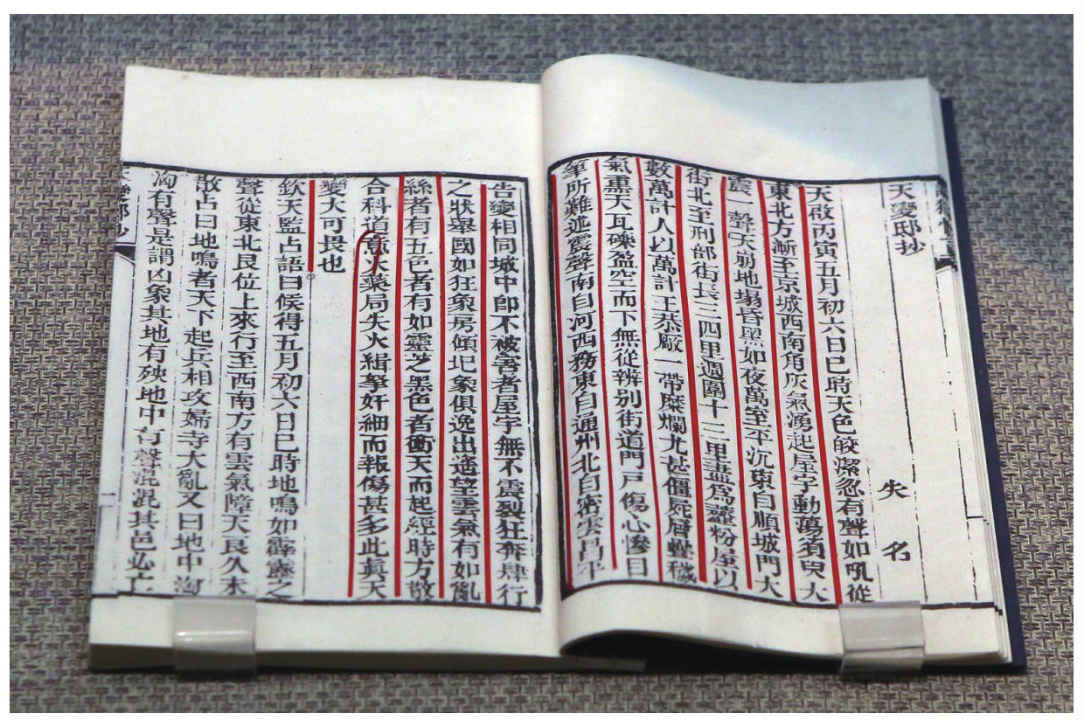 天變邸抄
失名
天啟丙寅五月初六日巳時天色皎潔忽有聲如吼從
東北方漸至京城西南角灰氣湧起屋宇動蕩須臾大
震一聲天崩地塌昏黑如夜萬至平沉東自順城門大
街北至刑部街長三四里週圍十三里盡為齏粉屋以
數萬計人以萬計王恭廠一帶糜爛尤甚僵屍層疊穢
氣熏天瓦礫盈空而下無從辨別街道門戶傷心慘目
筆所難述震聲南自河西務東自通州北自密雲昌平
告變相同城中即不被害者屋宇無不震裂狂奔肆行
之狀舉國如狂象房傾圮象俱逸出遙望雲氣有如亂
絲者有五色者有如靈芝黑色者衝天而起經時方散
合科道意火藥局失火緝拏奸細而報傷甚多此真天
變大可畏也
欽天監占語曰候得五月初六日巳時地鳴如霹靂之
聲從東北艮位上來行至西南方有雲氣障天良久未
散占曰地鳴者天下起兵相攻婦寺大亂又曰地中洶
洶有聲是謂凶象其地有殃地中有聲混混其邑必亡